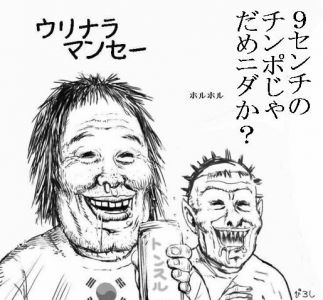 ９センチの
チンポじゃ
だめニダか？
ウリナラ
マンセー
ホルホル
トンスル
ぴろし